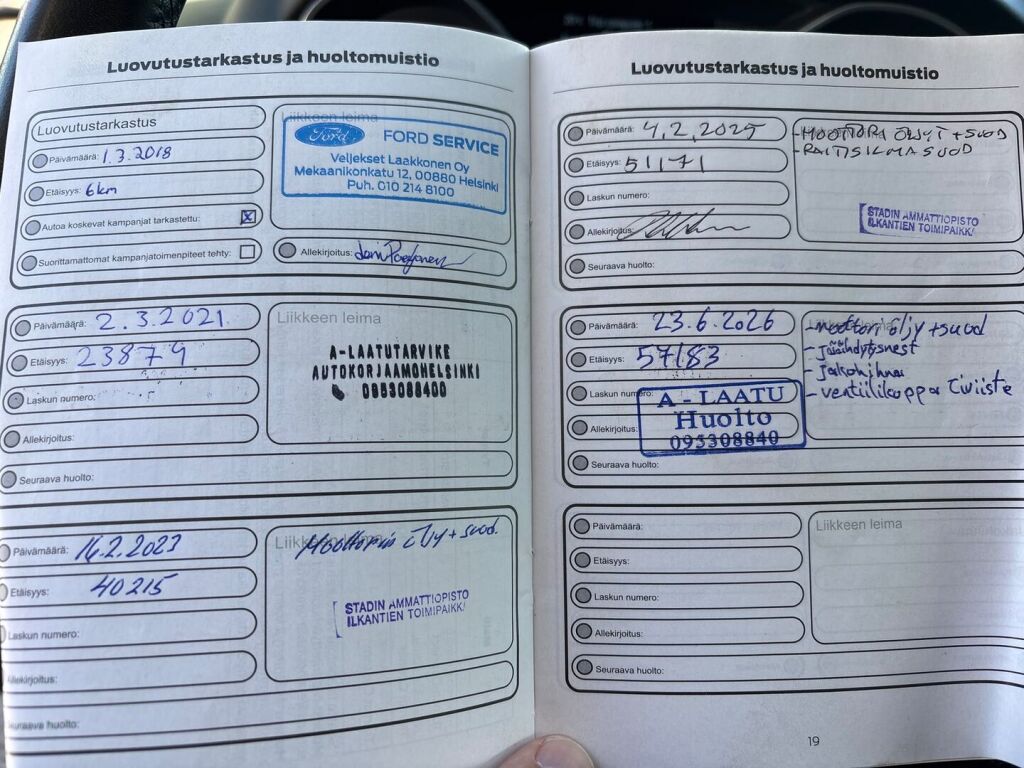 Luovutustarkastus ja huoltomuistio
Luovutustarkastus
Päivämäärä: 1.3.2018
Etäisyys: 6km
Autoa koskevat kampanjat tarkastettu: X
Suorittamattomat kampanjatoimenpiteet tehty:
Liikkeen leima
Ford FORD SERVICE
Veljekset Laakkonen Oy
Mekaanikonkatu 12, 00880 Helsinki
Puh. 010 214 8100
Allekirjoitus:
Päivämäärä: 2.3.2021.
Etäisyys: 23879
Laskun numero:
Allekirjoitus:
Seuraava huolto:
Liikkeen leima
A-LAATUTARVIKE
AUTOKORJAAMOHELSINKI
0953088400
Päivämäärä: 14.2.2023
Etäisyys: 40215
Laskun numero:
Allekirjoitus:
Seuraava huolto:
Liikkeen leima
Moottorin öljy + suod.
STADIN AMMATTIOPISTO
ILKANTIEN TOIMIPAIKK
Luovutustarkastus ja huoltomuistio
Päivämäärä: 4.2.2025
Etäisyys: 51171
Laskun numero:
Allekirjoitus:
Seuraava huolto:
- MOOTTORI ÖLJYT + SUOD
- RAITISILMASUOD
STADIN AMMATTIOPISTO
ILKANTIEN TOIMIPAIKK
Päivämäärä: 23.6.2026
Etäisyys: 57183
Laskun numero:
Allekirjoitus:
A - LAATU
Huolto
095308840
Seuraava huolto:
- moottori öljy + suod
- Jäähdytysnest
- Jakohihna
- ventiilikoppa tiiviste
Päivämäärä:
Etäisyys:
Laskun numero:
Allekirjoitus:
Seuraava huolto:
Liikkeen leima
19